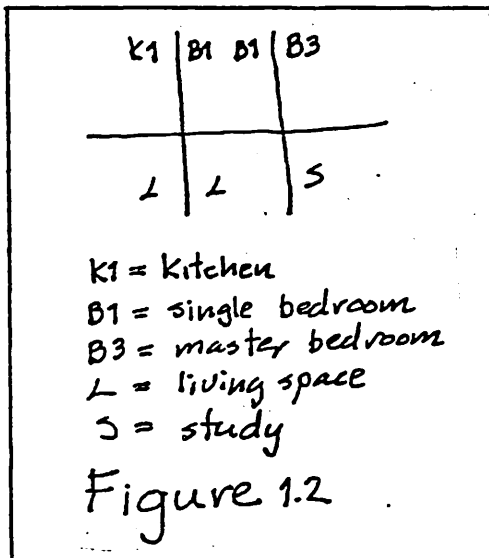 K1 B1 B1 B3
L L S
K1 = kitchen
B1 = single bedroom
B3 = master bedroom
L = living space
S = study
Figure 1.2